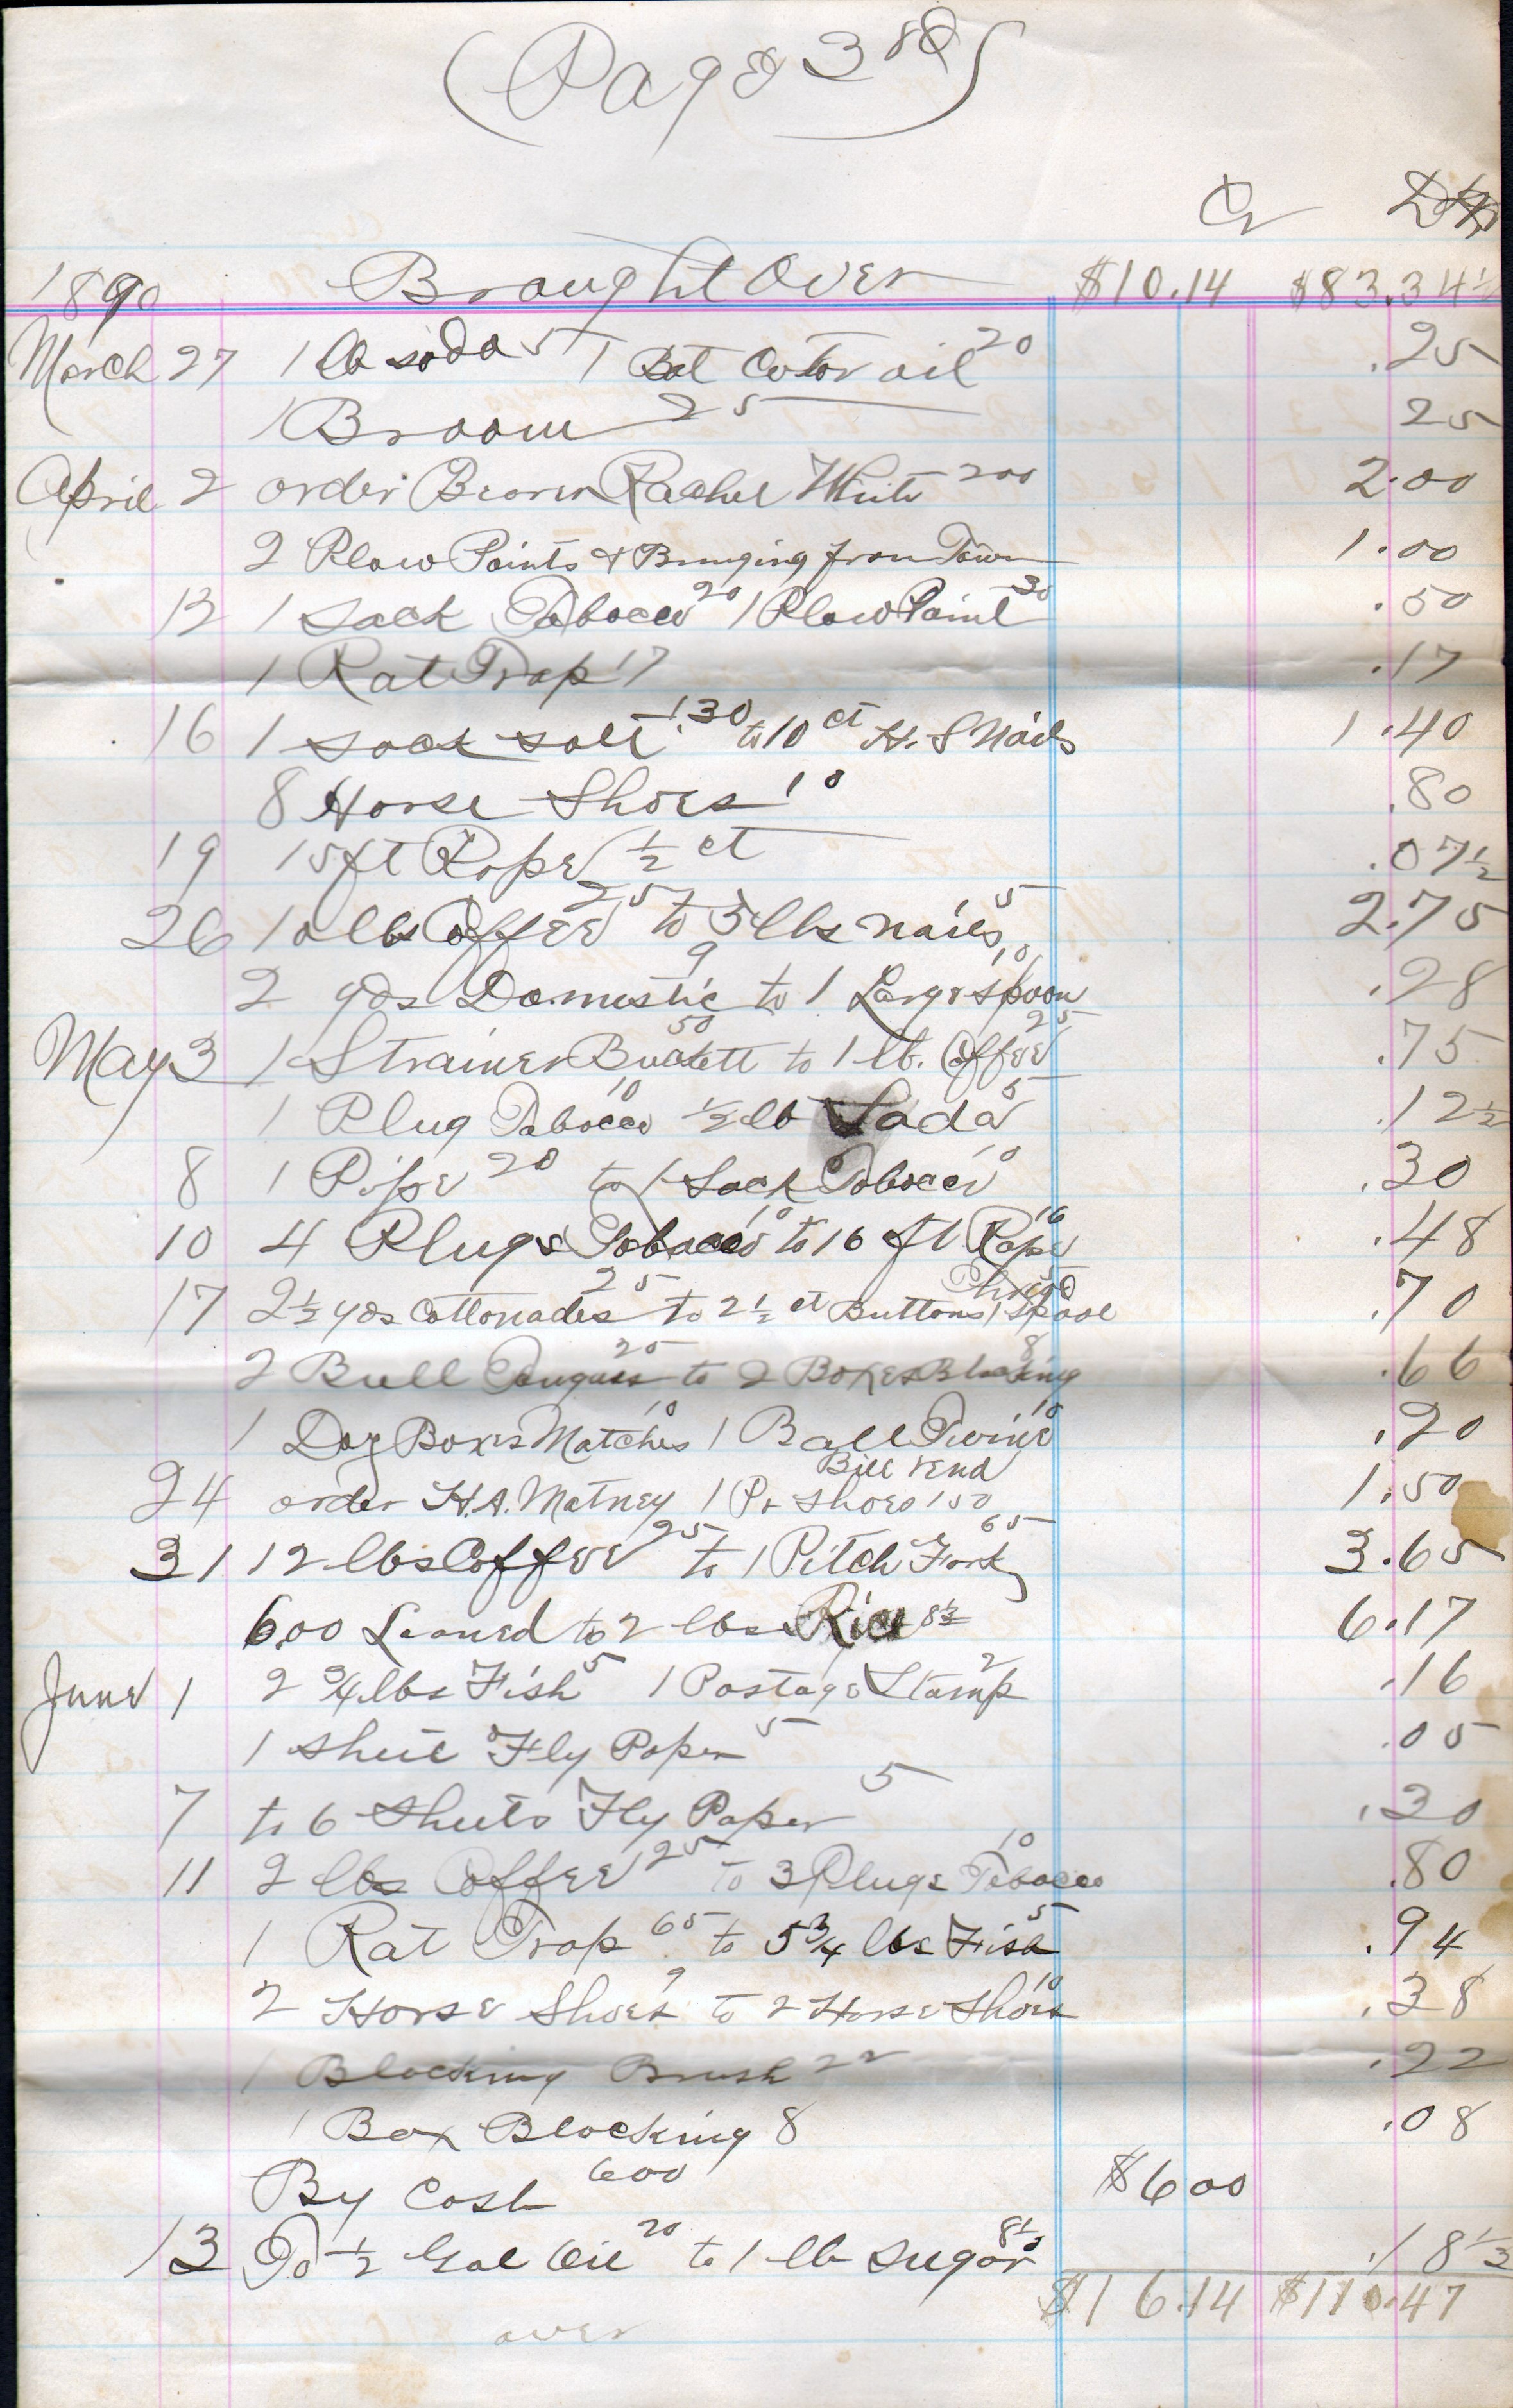 (Page 3 rd)
Cr Dr
1890 Brought Over $10.14 $83.34 1/2
March 27 1 lb soda 5 1 Bot Castor oil 20 .25
1 Broom 25 25
April 2 order Bearer Rachel White 200 2.00
2 Plow Points & Bringing from Town 1.00
12 1 Sack Tobacco 20 1 Plow Point 30 .50
1 Rat Trap 17 .17
16 1 sack salt 1.30 to 10 ct H. S Nails 1.40
8 Horse Shoes 10 .80
19 15 ft Rope 1/2 ct .07 1/2
26 10 lbs Coffee 25 to 5 lbs nails 5 2.75
2 yds Domestic 9 to 1 Large spoon 10 .28
May 3 1 Strainer Buckett 50 to 1 lb. Coffee 25 .75
1 Plug Tobacco 10 1/2 lb Soda 5 .12 1/2
8 1 Pipe 20 to 1 Sack Tobacco 10 .30
10 4 Plugs Tobacco 10 to 16 ft Rope 16 .48
17 2 1/2 yds Cottonades 25 to 2 1/2 ct Buttons 1 Spool Thread 5 .70
2 Bull Tongues 25 to 2 Boxes Blacking 8 .66
1 Doz Boxes Matches 10 1 Ball Twine 10 .20
24 order H.A. Matney 1 Pr Shoes 150 Bill 1.50
31 12 lbs Coffee 25 to 1 Pitch Fork 65 3.65
6.00 Loaned to 2 lbs Rice 8 1/2 6.17
June 1 2 3/4 lbs Fish 5 1 Postage Stamp 2 .16
1 sheet Fly Paper 5 .05
7 to 6 Sheets Fly Paper 5 .30
11 2 lbs Coffee 25 to 3 Plugs Tobacco 10 .80
1 Rat Trap 65 to 5 3/4 lbs Fish 5 .94
2 Horse Shoes 9 to 2 Horse Shoes 10 .38
1 Blacking Brush 22 .22
1 Box Blacking 8 .08
By Cash 600 $6 00
13 To 1/2 Gal Oil 20 to 1 lb sugar 8 1/3 .18 1/3
$16.14 $110.47
over